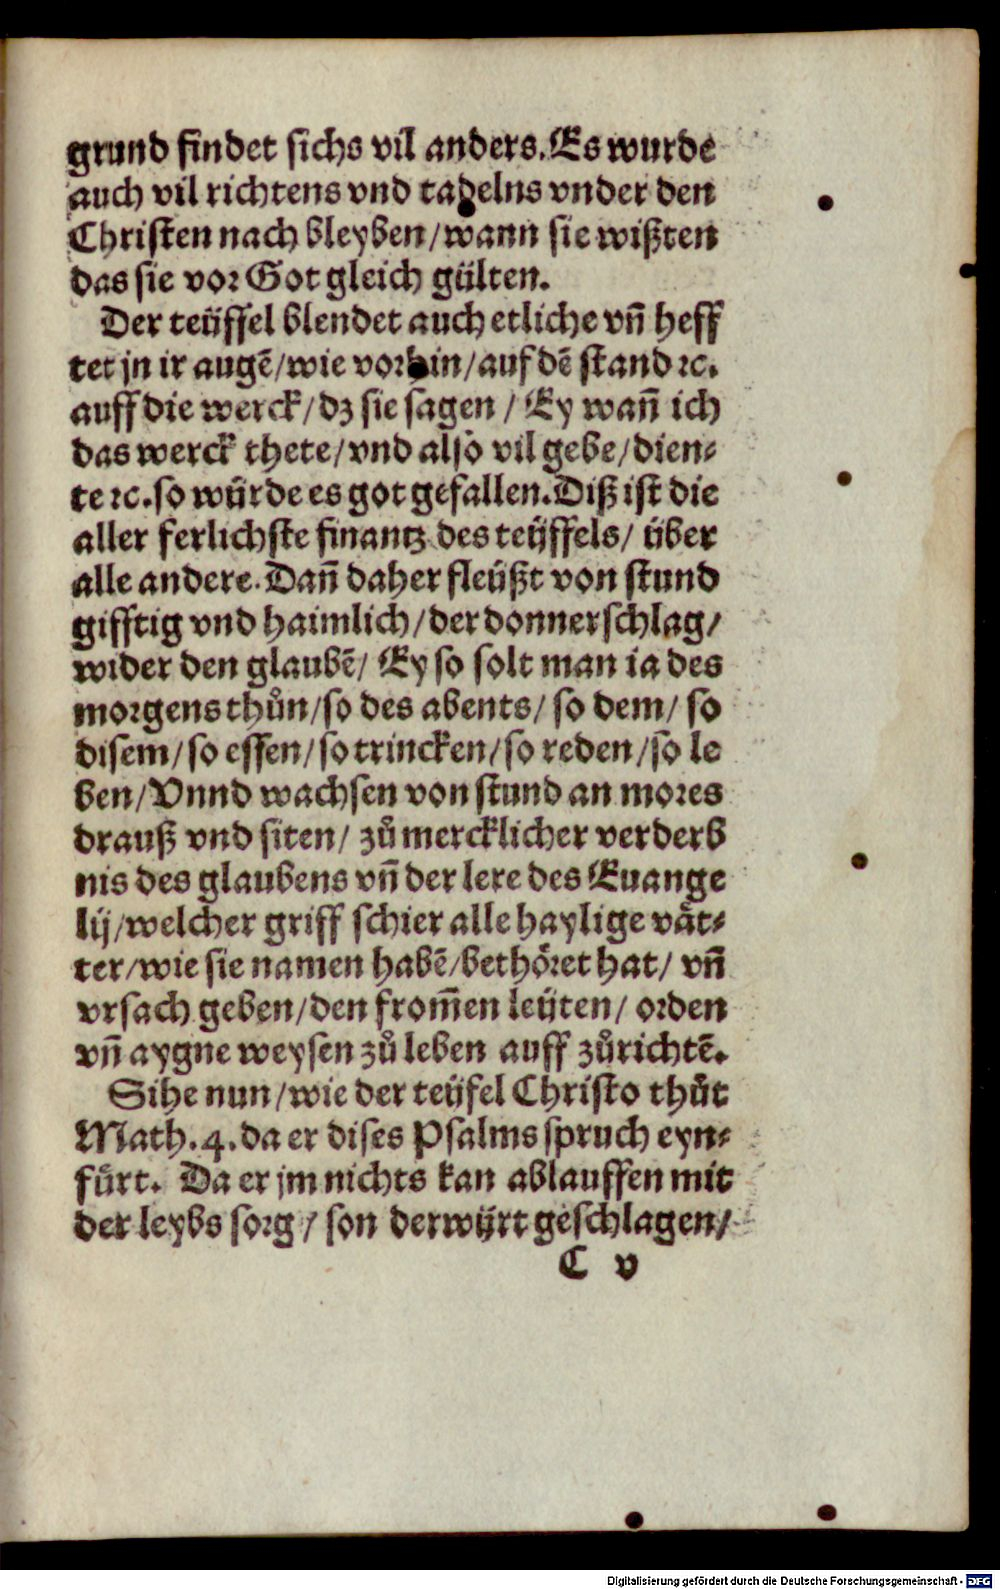 grund findet sichs vil anders. Es wurde
auch vil richtens vnd tadelns vnder den
Christen nach bleyben/wann sie wißten
das sie vor Got gleich gülten.
Der teüffel blendet auch etliche vñ heff
tet jn ir augē/wie vorhin/auf dē stand ꝛc.
auff die werck/dz sie sagen / Ey wañ ich
das werck thete/vnd also vil gebe/dien⸗
te ꝛc. so würde es got gefallen. Diß ist die
aller ferlichste finantz des teüffels/ über
alle andere. Dañ daher fleüßt von stund
gifftig vnd haimlich/der donnerschlag/
wider den glaubē/ Ey so solt man ia des
morgens thůn/so des abents/ so dem/ so
disem/so essen/so trincken/so reden/so le
ben/Vnnd wachsen von stund an mores
drauß vnd siten/ zů mercklicher verderb
nis des glaubens vñ der lere des Euange
lij/welcher griff schier alle haylige vät⸗
ter/wie sie namen habē/bethöret hat/ vñ
vrsach geben/den from̃en leüten/ orden
vñ aygne weysen zů leben auff zůrichtē.
Sihe nun/wie der teüfel Christo thůt
Math. 4. da er dises Psalms spruch eyn⸗
fürt. Da er jm nichts kan ablauffen mit
der leybs sorg/ son derwürt geschlagen/
C v
Digitalisierung gefördert durch die Deutsche Forschungsgemeinschaft - DFG